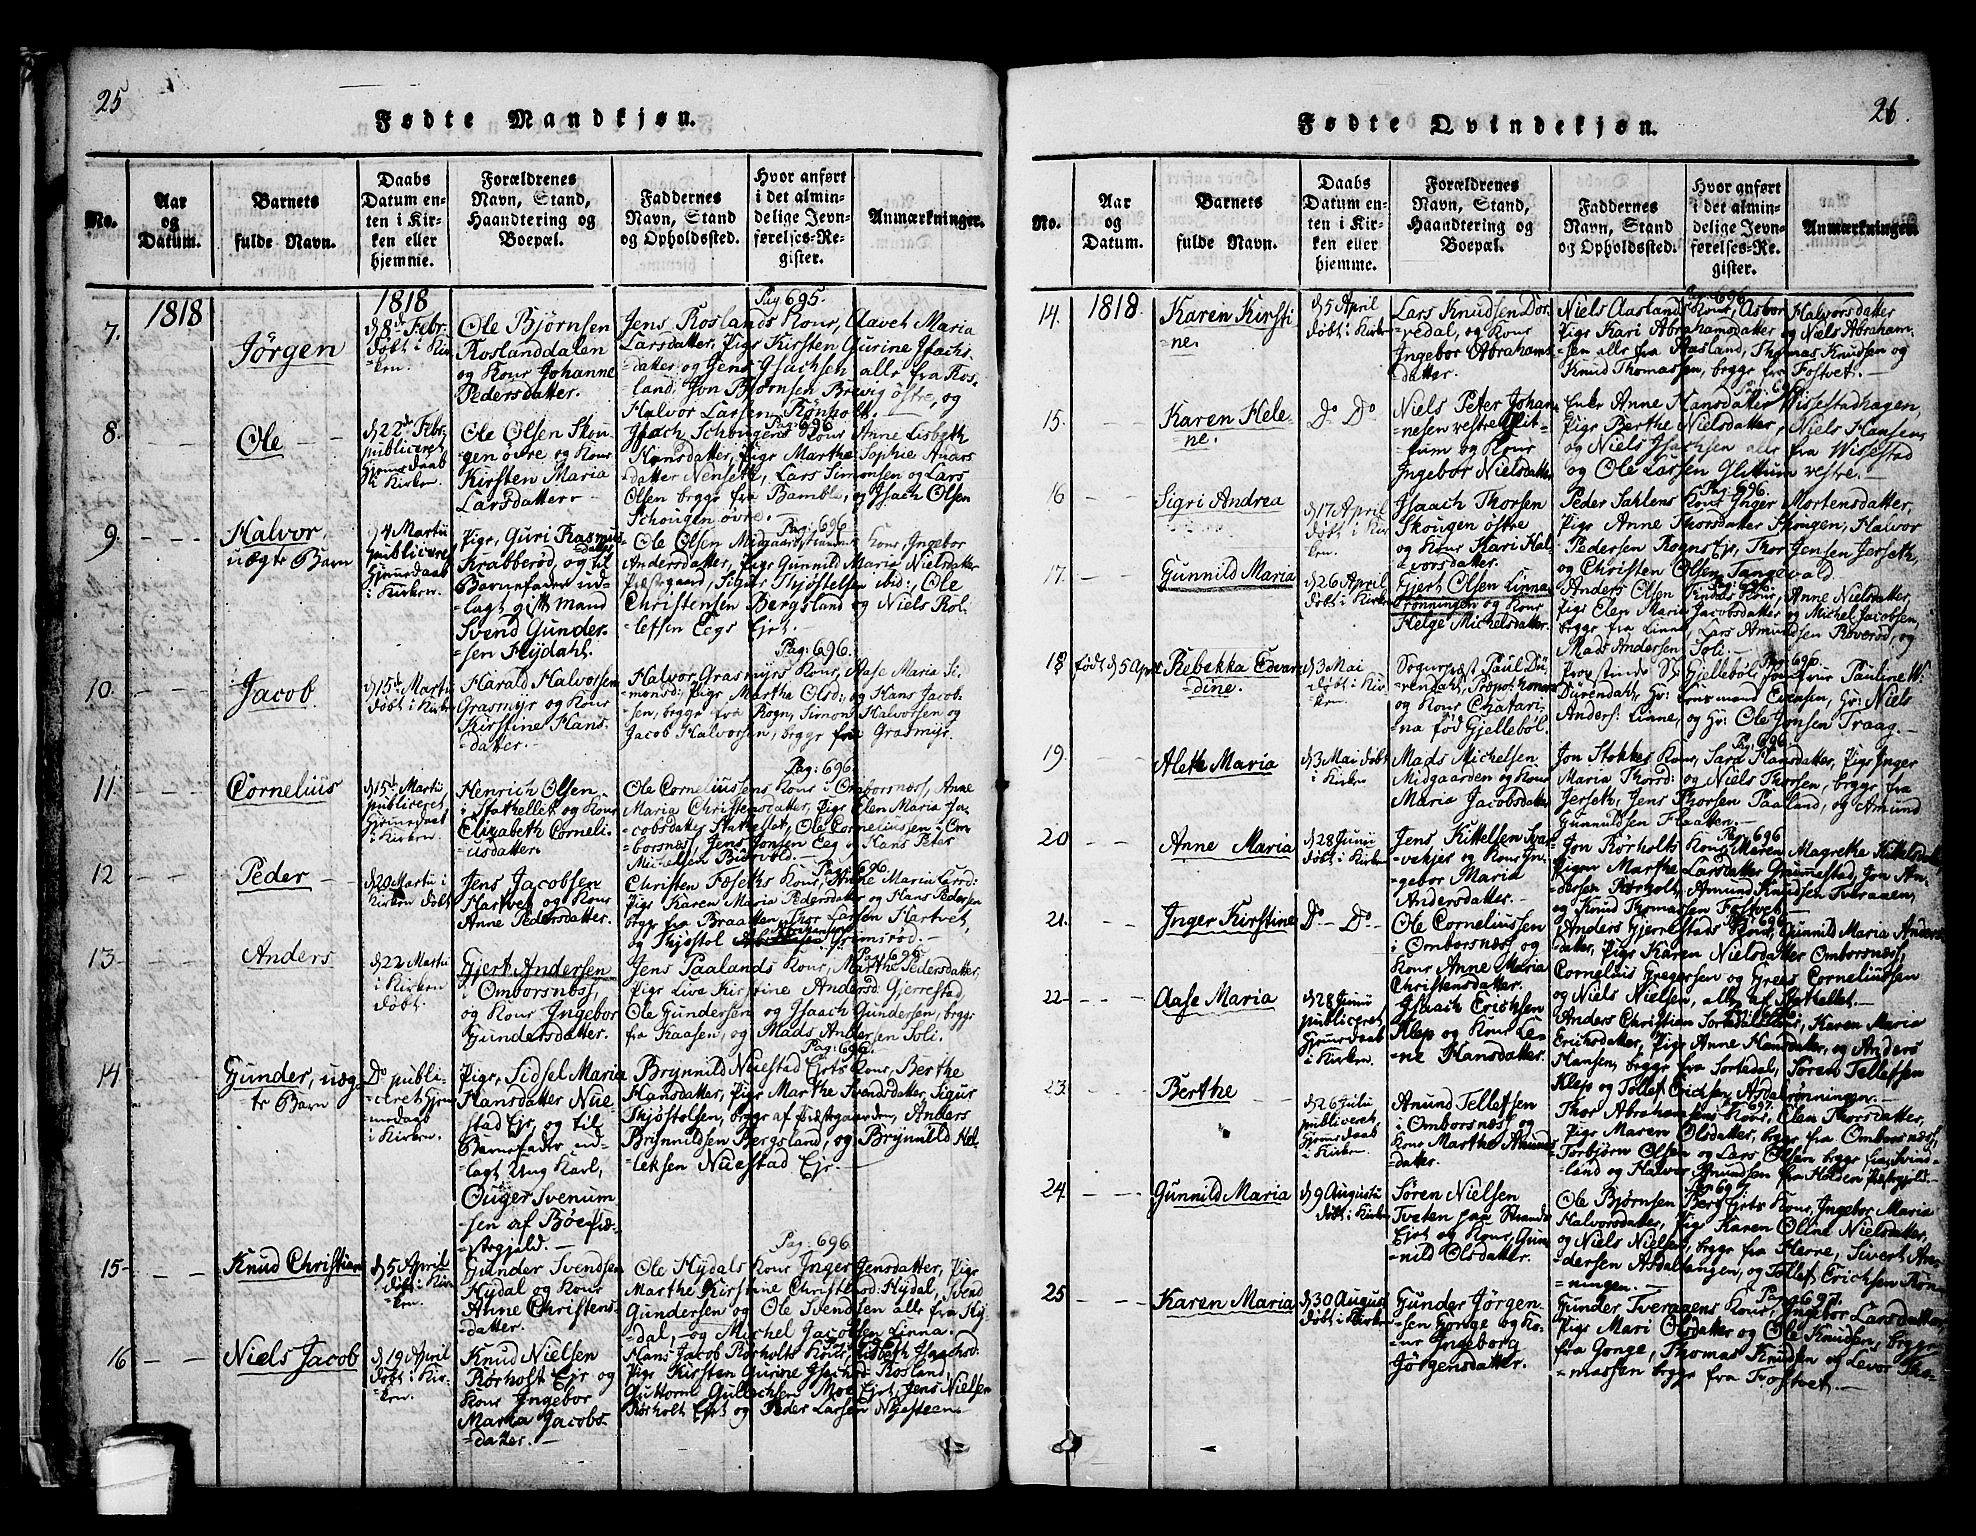 25
Fødte Mandkjøn.
No.
Aar
og
Datum.
Barnets
fulde Navn.
Daabs
Datum en-
ten i Kir-
ken eller
hjemme.
Forældrenes
Navn, Stand,
Haandtering og
Boepæl.
Faddernes
Navn, Stand
og Opholdssted.
Hvor anført
i det almin-
delige Jevn-
førelses-Re-
gister.
Anmærkninger.
7.
1818
Jörgen
1818
d 8de Febr.
döbt i Kir-
ken.
Ole Björnsen
Roslanddalen
og Kone Johanne
Pedersdatter.
Pag: 695.
Jens Roslands Kone, Aavet Maria
Larsdatter, Pige Kirsten Gurine Isachs-
datter og Jens Isachsen alle fra Ros-
land, Jon Björnsen Brevig östre, og
Halvor Larsen Rönholt.
8.
Ole
d 22de Febr.
publiceret
Hjemedaab
i Kirken.
Ole Olsen Skou-
gen övre og Kone
Kirsten Maria
Larsdatter.
Pag: 696
Isach Schougens Kone Anne Lisbeth
Hansdatter, Pige Marthe Sophie Anders-
datter Nenseth, Lars Simonsen og Lars
Olsen begge fra Bamble, og Isach Olsen
Schougen övre.
9.
Halvor,
uægte Barn
d 4 Martii
publiceret
Hjemedaab
i Kirken.
Pige Guri Rasmus-
datter
Krabberöd, og til
Barnefader ud-
lagt gift Mand
Svend Gunder-
sen Hydahl.
Pag: 696
Ole Olsen Midgaardstrandens Kone, Ingebor
Andersdatter, Pige Gunnild Maria Nielsdatter
Præstegaard, Sigur Thjöstelsen ibid:, Ole
Christensen Bergsland og Niels Rol-
lefsen Eegs Ejet.
10.
Jacob.
d 15de Martii
döbt i Kirken
Harald Halvorsen
Grasmyr og Kone
Kirstine Hans-
datter.
Pag: 696.
Halvor Grasmyrs Kone, Aase Maria Si-
monsd: Pige Marthe Olsd: og Hans Jacob-
sen, begge fra Rogn, Simon Halvorsen og
Jacob Halvorsen, begge fra Grasmyr.
11.
Cornelius
d 15de Martii
publiceret,
Hjemedaab
i Kirken
Henrich Olsen
i Stathellet og Kone
Elizabeth Corneli-
usdatter.
Pag: 696.
Ole Corneliussens Kone i Omborsnæss, Anne
Maria Christensdatter, Pige Elen Maria Ja-
cobsdatter Stathellet, Ole Corneliussen i Om-
borsnæs, Jens Jonsen Eeg og Hans Peter
Michelsen Björvold.
12
Peder
d 20 Martii i
Kirken döbt
Jens Jacobsen
Hartvet og Kone
Anne Pedersdatter.
Pag: 696
Christen Fæseths Kone, Anne Maria Corsd:
Pige Karen Maria Pedersdatter og Hans Pedersen
begge fra Braatten, Thor Larsen Hartvet,
og Thjöstol Grimsröd.
13
Anders
d 22 Martii
i Kirken
döbt.
Gjert Andersen
i Omborsnæss,
og Kone Ingebor
Gundersdatter.
Pag: 696.
Jens Paalands Kone, Marthe Pedersdatter,
Pige Liva Kirstine Andersd: Gjerrestad,
Ole Gundersen og Isaach Gundersen, begge
fra Kaasen, og Mads Andersen Soli.
14
Gunder, uæg-
te Barn
Do publi-
ceret Hjem-
medaab
i Kirken.
Pige, Lidsel Maria
Hansdatter Nue-
stad Ejr, og til
Barnefader ud-
lagt Ung Karl,
Ouger Svenum-
sen af Böe Præ-
stegjeld.
Pag: 696.
Brynnild Nuestad Ejets Kone, Berthe
Hansdatter, Pige Marthe Svendsdatter, Sigur
Thjöstolsen, begge af Præstegaarden, Anders
Brynnildsen Bergsland, og Brynnild Hel-
leksen Nuestad Ejr.
15
Knud Christian
d 5 April
döbt i Kir-
ken.
Gunder Svendsen
Hydal og Kone
Anne Christens-
datter.
Pag: 696
Ole Hydals Kone Inger Jensdatter, Pige
Marthe Kirstine Christensd: Hydal, Svend
Gundersen og Ole Svendsen alle fra Hy-
dal, og Michel Jacobsen Linna.
16
Niels Jacob
d 19 April
döbt i Kir-
ken.
Knud Nielsen
Rörholt Ejr og
Kone Ingebor
Maria Jacobs-
datter.
Hans Jacob Rörholts Kone Lisbeth Isachsd:
Pige Kirsten Gurine Isachsd Rosland,
Guttorm Gullachsen Moe Ejet, Jens Nielsen
Rörholt Ejet og Peder Larsen Nyesteen.
26.
Fødte Qvindekjøn.
No.
Aar
og
Datum.
Barnets
fulde Navn.
Daabs
Datum en-
ten i Kir-
ken eller
hjemme.
Forældrenes
Navn, Stand,
Haandtering og
Boepæl.
Faddernes
Navn, Stand
og Opholdssted.
Hvor anført
i det almin-
delige Jevn-
førelses-Re-
gister.
Anmærkninger.
14.
1818.
Karen Kirsti-
ne.
d 5 April
döbt i Kirken
Lars Knudsen Dör-
vedal, og Kone
Ingebor Abrahams-
datter.
Pag: 696
Niels Aasland Kone, Asbor Halvorsdatter
Pige Kari Abrahamsdatter og Niels Abraham-
sen alle fra Aasland, Thomas Knudsen og
Knud Thomassen, begge fra Fostvet.
15.
Karen Hele-
ne.
Do Do
Niels Peter Johan-
nesen vestre Glit-
tum og Kone
Ingebor Nielsdatter
Pag: 696
Enke Anne Hansdatter Wissestadhagen,
Pige Berthe Nielsdatter, Niels Hansen,
og Niels Isachsen alle fra Wissestad
og Ole Larsen Glittum vestre.
16
Sigri Andrea
d 17 April
döbt i Kir-
ken.
Isaach Thorsen
Skougen östre
og Kone Kari Hal-
vorsdatter.
Pag: 696.
Peder Sahlens Kone Inger Mortensdatter,
Pige Anne Thorsdatter Skougen, Halvor
Pedersen Rogns Ejr, Thor Jensen Jerseth,
og Christen Olsen Tangevald.
17.
Gunnild Maria
d 26 April
döbt i Kirken
Gjert Olsen Linna-
trönningen og Kone
Helge Michelsdatter.
Pag: 696.
Anders Olsen Kruds Kone, Anne Nielsdatter,
Pige Elen Maria Jacobsdatter og Michel Jacobsen,
begge fra Linne, Lars Amundsen Roveröd, og
Mads Andersen Soli.
18
födt d 5 April
Rebekka Edvar-
dine.
d 3 Mai
döbt i Kir-
ken.
Sogneprest Paul Dü-
vendahl, Præpos: honor:
og Kone Chatari-
na föd Gjelleböl.
Pag: 696.
Provstinde S: Gjelleböl, Jomfrue Pauline W:
Dürendal, Hr: Evensen, Hr: Niels
Anders: Linne, og Hr: Ole Jonsen Traag.
19.
Aleth Maria
d 3 Mai döbt
i Kirken
Mads Michelsen
Midgaarden og Kone
Maria Jacobsdatter
Pag: 696
Jon Stokkes Kone, Sara Hansdatter, Pige Inger
Maria Thorsd: og Niels Thorsen, begge fra
Jerseth, Jens Thorsen Paaland, og Amund
Gunnuldsen Flaatten.
20
Anne Maria
d 28 Junii
döbt i Kirken
Jens Kittelsen Sva-
vekjer og Kone In-
gebor Maria
Andersdatter.
Pag: 696
Jon Rörholts Kone, Maren Magrethe Kittelsdatter
Pigen Marthe Larsdatter Graumestad, Jon An-
dersen Rörholt, Amund Knudsen Tveraaen,
og Knud Thomassen Fostvet.
21.
Inger Kirstine
Do Do
Ole Corneliussen
i Omborsnæss og
Kone Anne Maria
Christensdatter.
696
Anders Gjerrestads Kone, Gunnild Maria Anders-
datter, Pige Karen Nielsdatter Omborsnæss,
Cornelius Gregersen og Grees Corneliussen
og Niels Nielsen, alle af Stathellet.
22
Aase Maria
d 28 Junii
publiceret
Hjemedaab
i Kirken
Isaach Erichsen
Klep og Kone Le-
ne Hansdatter.
Anders Christian Sortedals Kone, Karen Maria
Erichsdatter, Pige Anne Hansdatter, og Anders
Hansen, begge fra Sortedal, Sören Tellefsen
Klep og Tollef Erichsen Asdalsrönningen.
23.
Berthe
d 26 Julii
publiceret
Hjemedaab
i Kirken.
Amund Tellefsen
i Omborsnæss, og
Kone Marthe Amunds-
datter.
Pag: 697.
Thor Abrahamsens Kone, Elen Thorsdatter,
Pige Maren Olsdatter, begge fra Omborsnæss,
Torbjörn Olsen og Lars Olsen begge fra Svind-
land og Halvor Amundsen fra Holsen Præstegjeld.
24.
Gunnild Maria
d 9 Augustii
döbt i Kirken
Sören Nielsen
Tveten paa Strands
Ejet og Kone Gun-
nild Olsdatter.
Pag: 697
Ole Björnsen Berg Ejets Kone, Ingebor Maria
Halvorsdatter, Pige Karen Oline Nielsdatter,
og Niels Nielsen, begge fra Herre, Sivert An-
dersen Asdaltangen, og Tollef Erichsen Rön-
ningen.
25
Karen Maria
d 30 August
döbt i Kirken
Gunder Jörgen-
sen Gonge og Ko-
ne Ingeborg
Jörgensdatter.
Pag: 697.
Gunder Tveraaens Kone, Ingebor Larsdatter,
Pige Mari Olsdatter og Ole Knudsen, begge
fra Gonge, Thomas Knudsen og Levor Tho-
massen begge fra Fostvet.